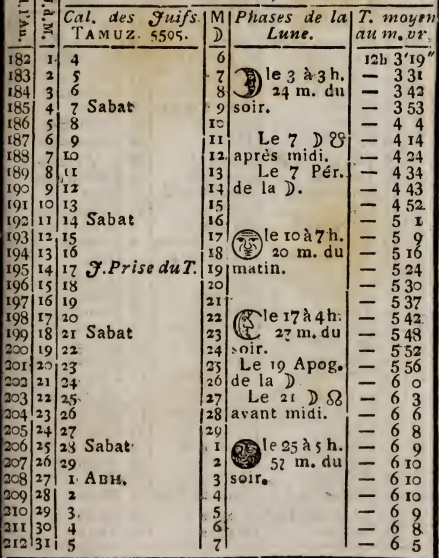 j. d. l'An. j. d. M. Cal. des Juifs. TAMUZ. 5505. M ☽ Phases de la Lune. T. moyen au m. vr.
182 1 4 6 12h 3'19"
183 2 5 7 le 3 à 3 h. — 3 31
184 3 6 8 24 m. du — 3 42
185 4 7 Sabat 9 soir. — 3 53
186 5 8 10 — 4 4
187 6 9 11 Le 7 ☽ ☋ — 4 14
188 7 10 12 après midi. — 4 24
189 8 11 13 Le 7 Pér. — 4 34
190 9 12 14 de la ☽. — 4 43
191 10 13 15 — 4 52
192 11 14 Sabat 16 — 5 1
193 12 15 17 le 10 à 7 h. — 5 9
194 13 16 18 20 m. du — 5 16
195 14 17 J. Prise du T. 19 matin. — 5 24
196 15 18 20 — 5 30
197 16 19 21 — 5 37
198 17 20 22 le 17 à 4 h. — 5 42
199 18 21 Sabat 23 27 m. du — 5 48
200 19 22 24 soir. — 5 52
201 20 23 25 Le 19 Apog. — 5 56
202 21 24 26 de la ☽ — 6 0
203 22 25 27 Le 21 ☽ ☊ — 6 3
204 23 26 28 avant midi. — 6 6
205 24 27 29 — 6 8
206 25 28 Sabat 1 le 25 à 5 h. — 6 9
207 26 29 2 52 m. du — 6 10
208 27 1 ABH. 3 soir. — 6 10
209 28 2 4 — 6 10
210 29 3 5 — 6 9
211 30 4 6 — 6 8
212 31 5 7 — 6 5